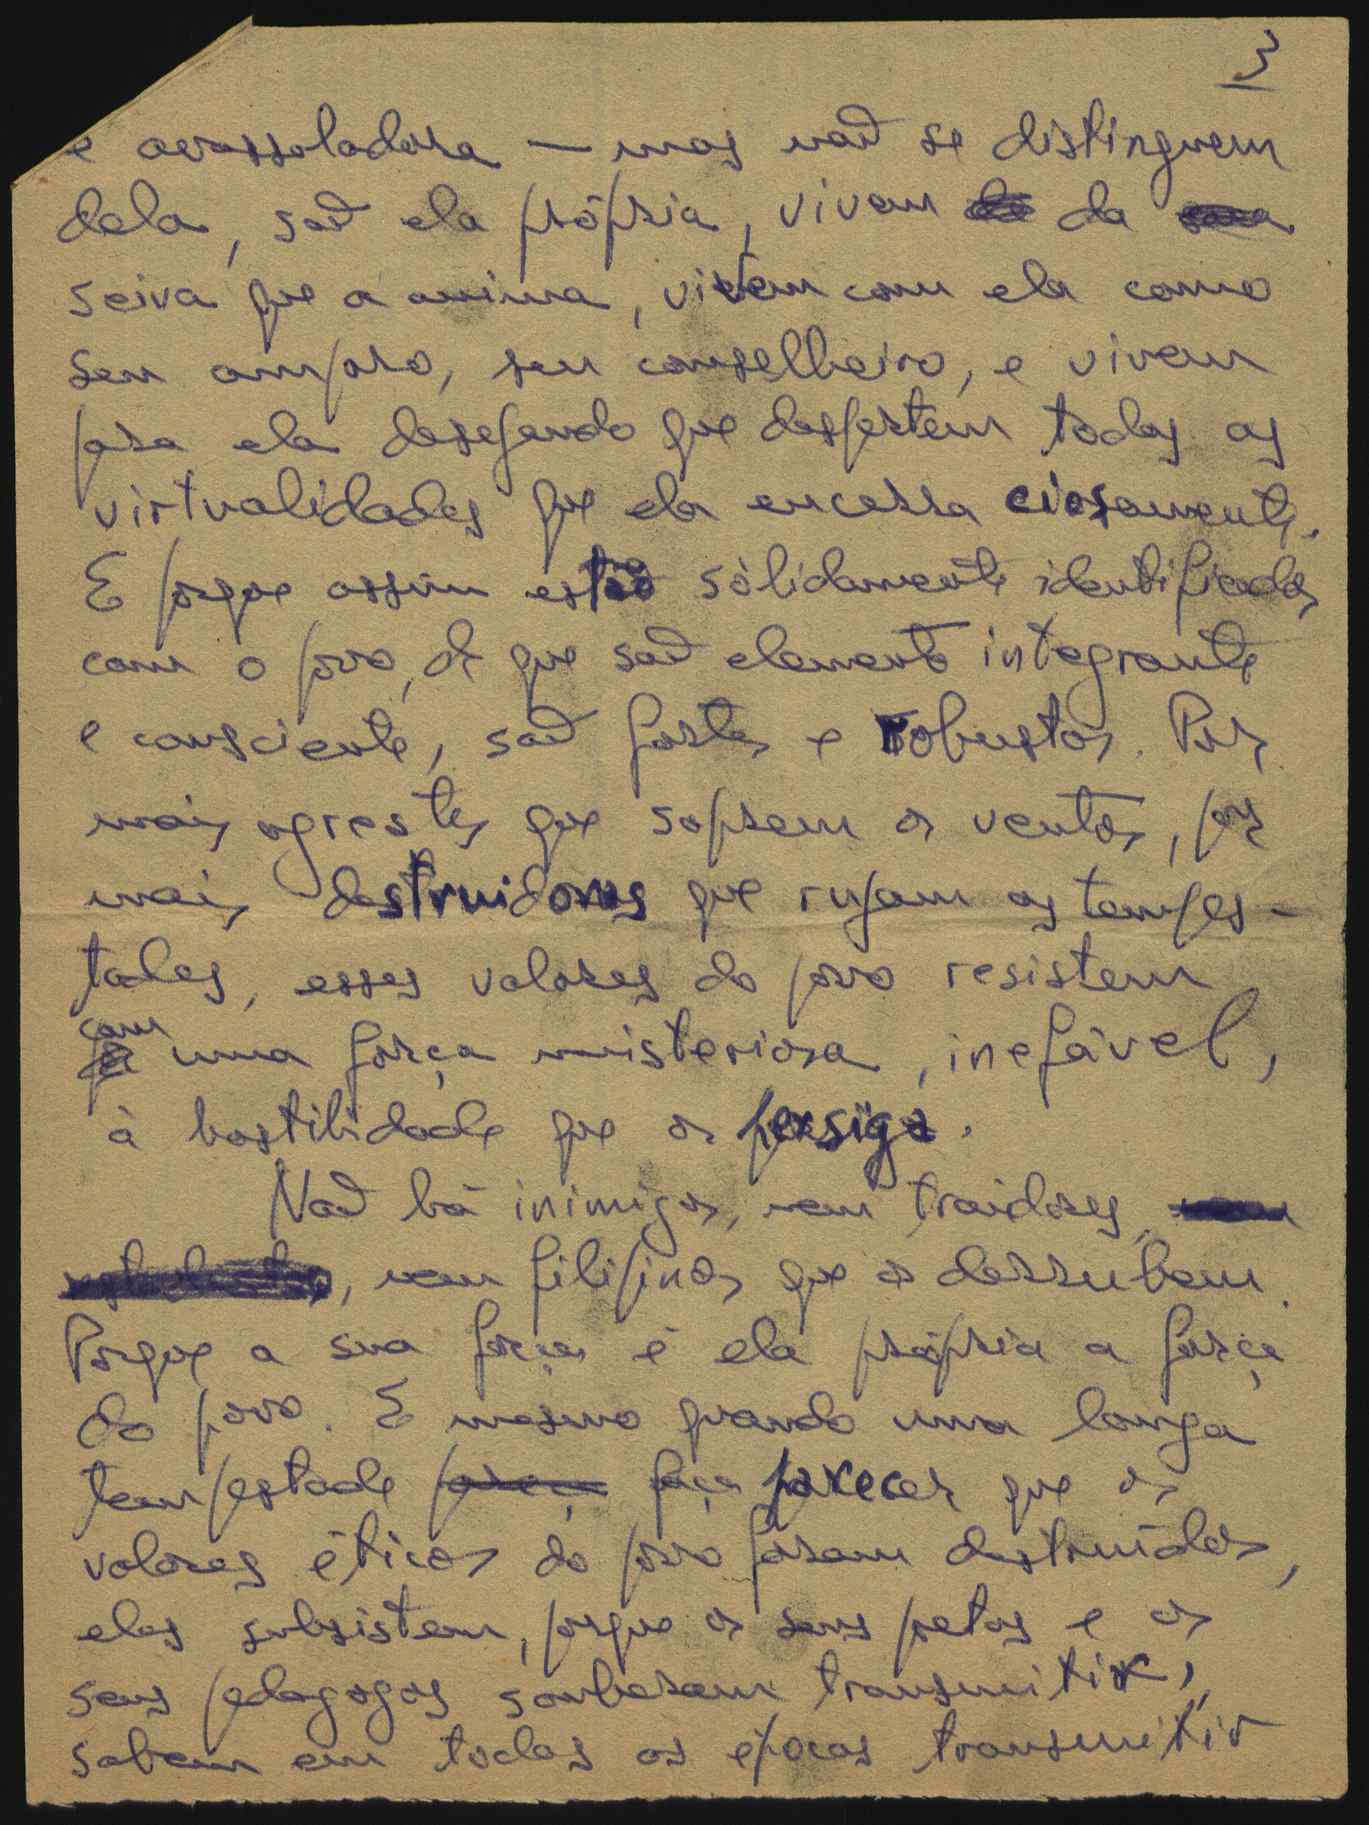 3
e avassaladora — mas não se distinguem
dela, são ela própria, vivem da
seiva que a anima, vivem com ela como
seu amparo, seu conselheiro, e vivem
para ela desejando que despertem todas as
virtualidades que ela encerra ciosamente.
E porque assim estão sòlidamente identificados
com o povo, de que são elemento integrante
e consciente, são fortes e robustos. Por
mais agrestes que soprem os ventos, por
mais destruidoras que rujam as tempes-
tades, esses valores do povo resistem
com uma força misteriosa, inefável,
à hostilidade que os persiga.
Não há inimigos, nem traidores,
, nem filipinos que os derrubem.
Porque a sua força é ela própria a força
do povo. E mesmo quando uma longa
tempestade faça parecer que os
valores éticos do povo foram destruídos,
eles subsistem, porque os seus poetas e os
seus pedagogos souberam transmitir,
sabem em todas as épocas transmitir